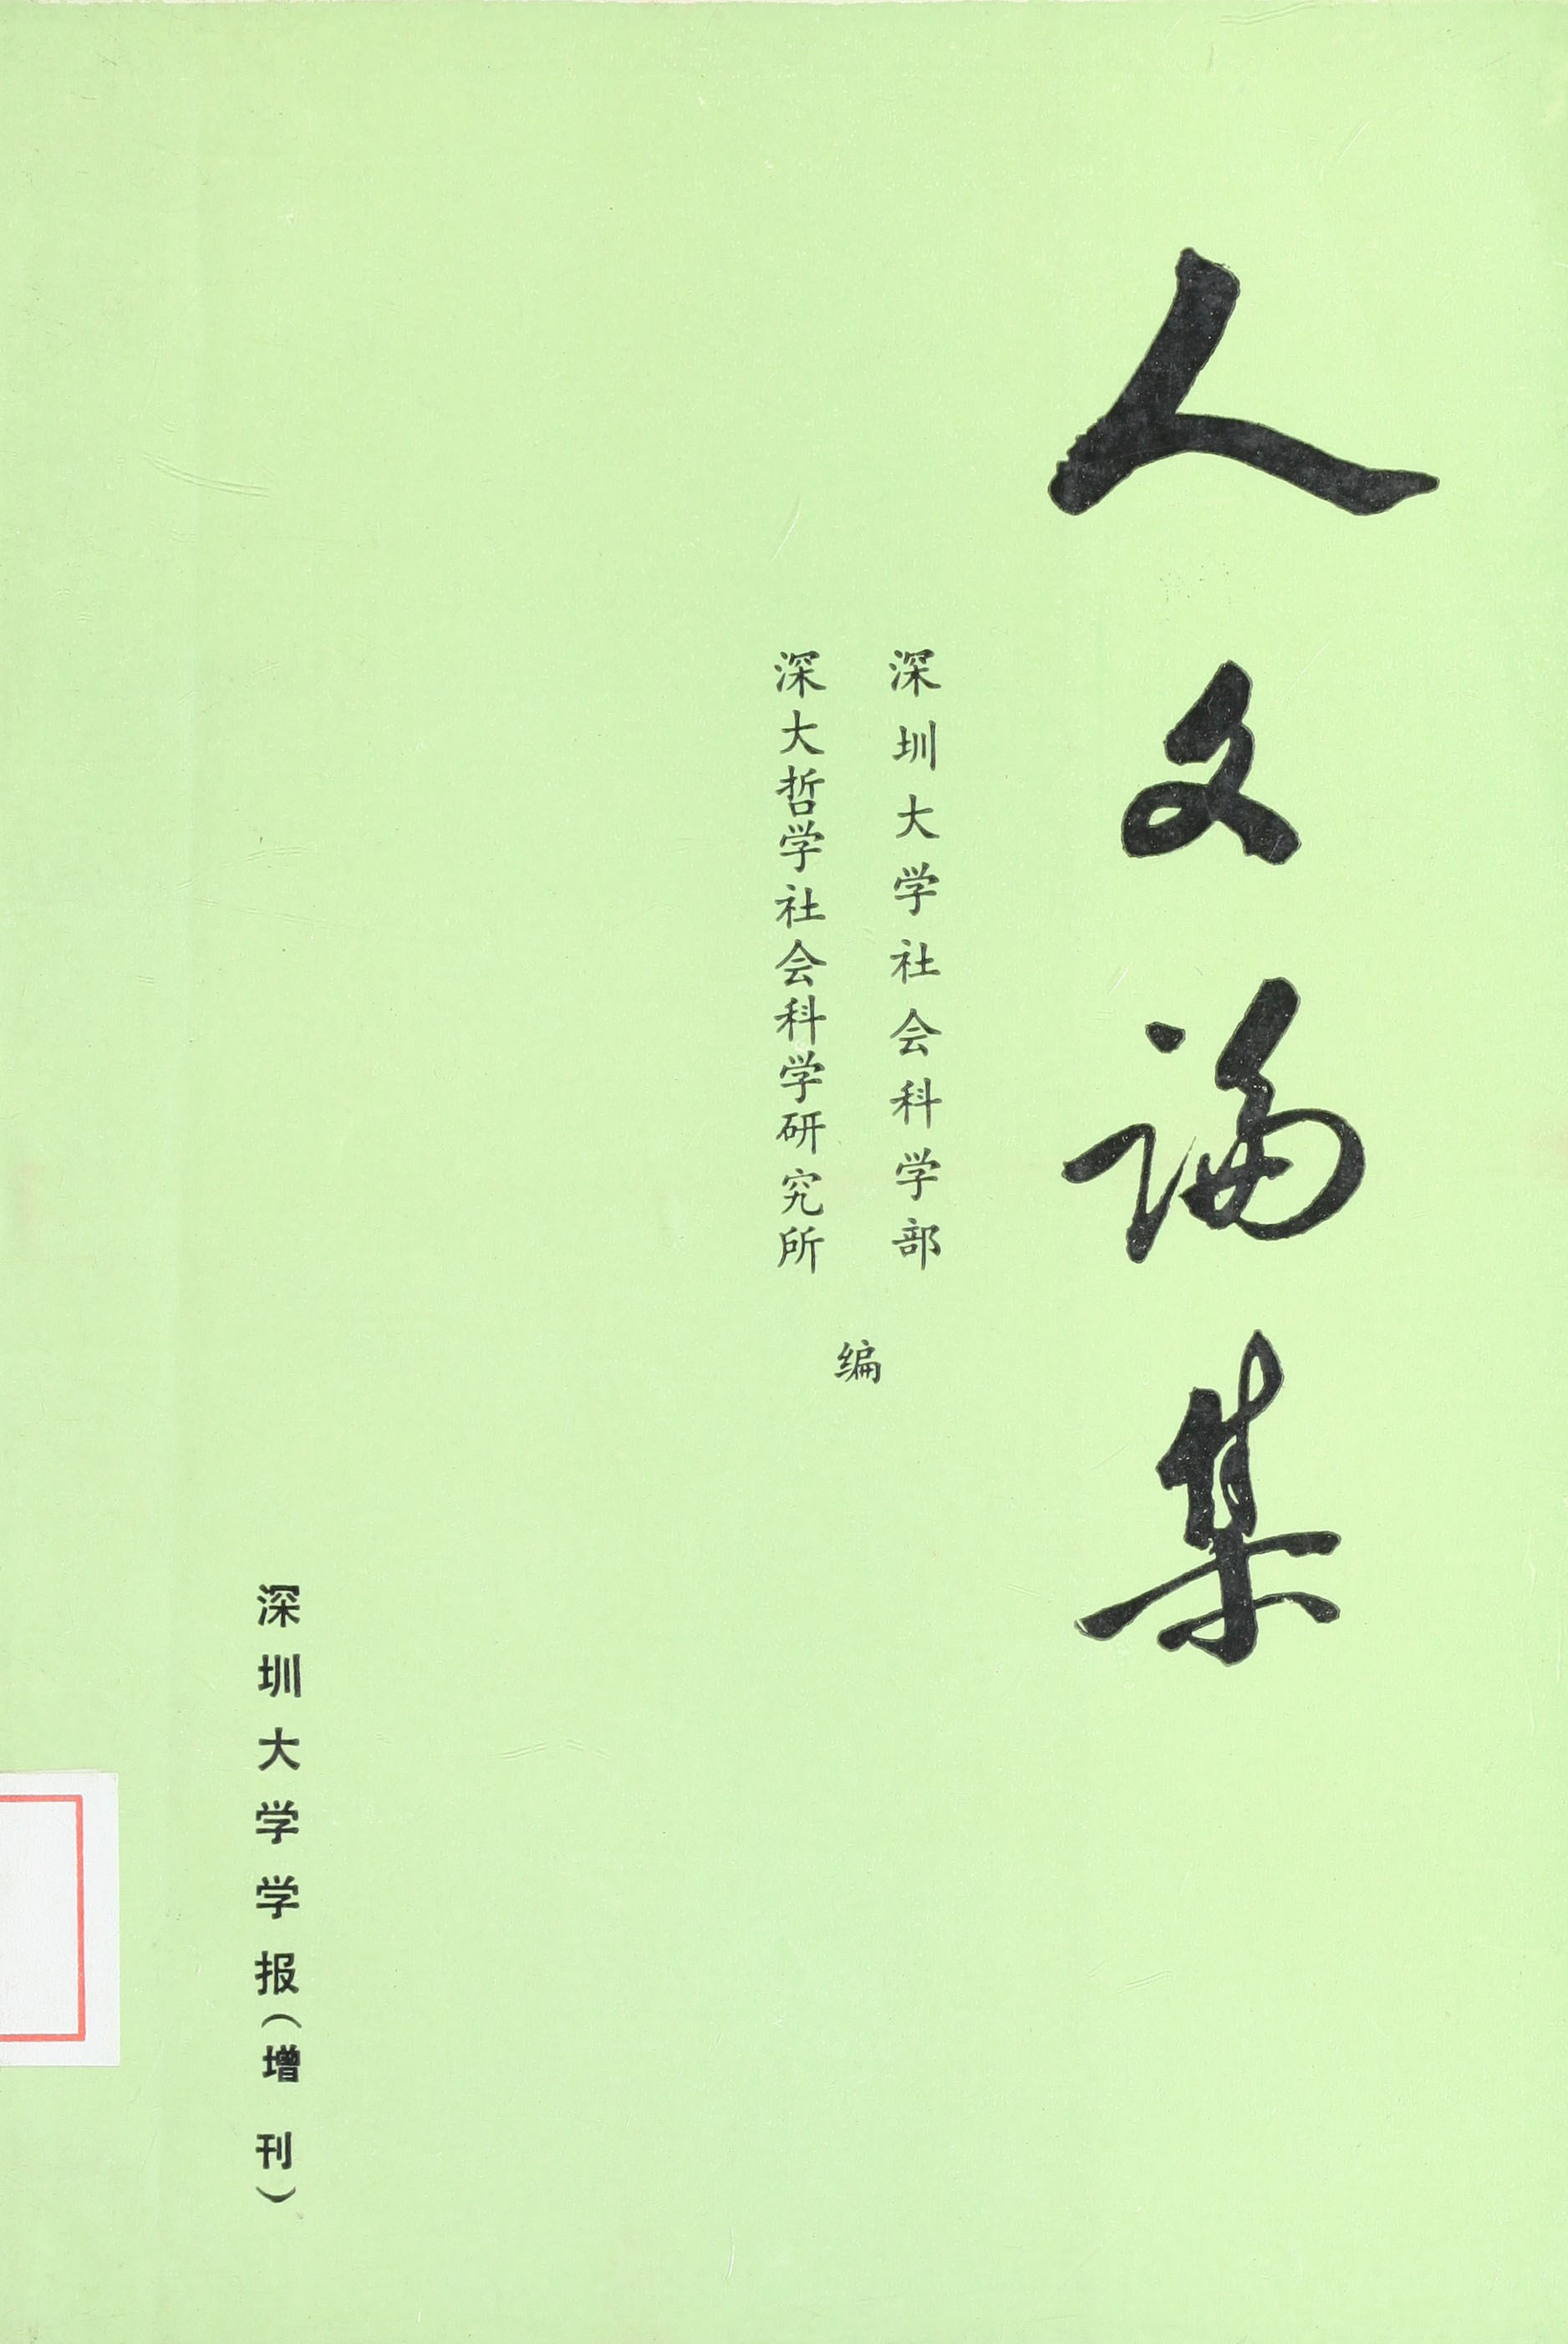 人文论集
深圳大学社会科学部
深大哲学社会科学研究所
编
深圳大学学报(增刊)